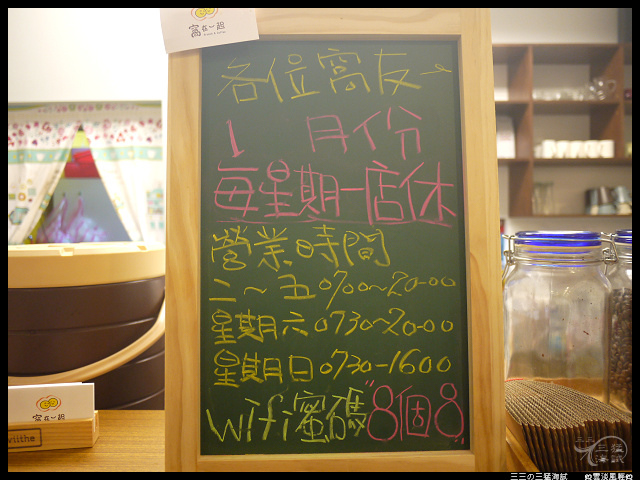 窩在一起
各位窩友~
1 月份
每星期一店休
營業時間
二～五0700～20-00
星期六0730~20-00
星期日0730-1600
wifi蜜碼"8個8"
窩在一起
三三の三猛海賊
㊣雲淡風輕㊣